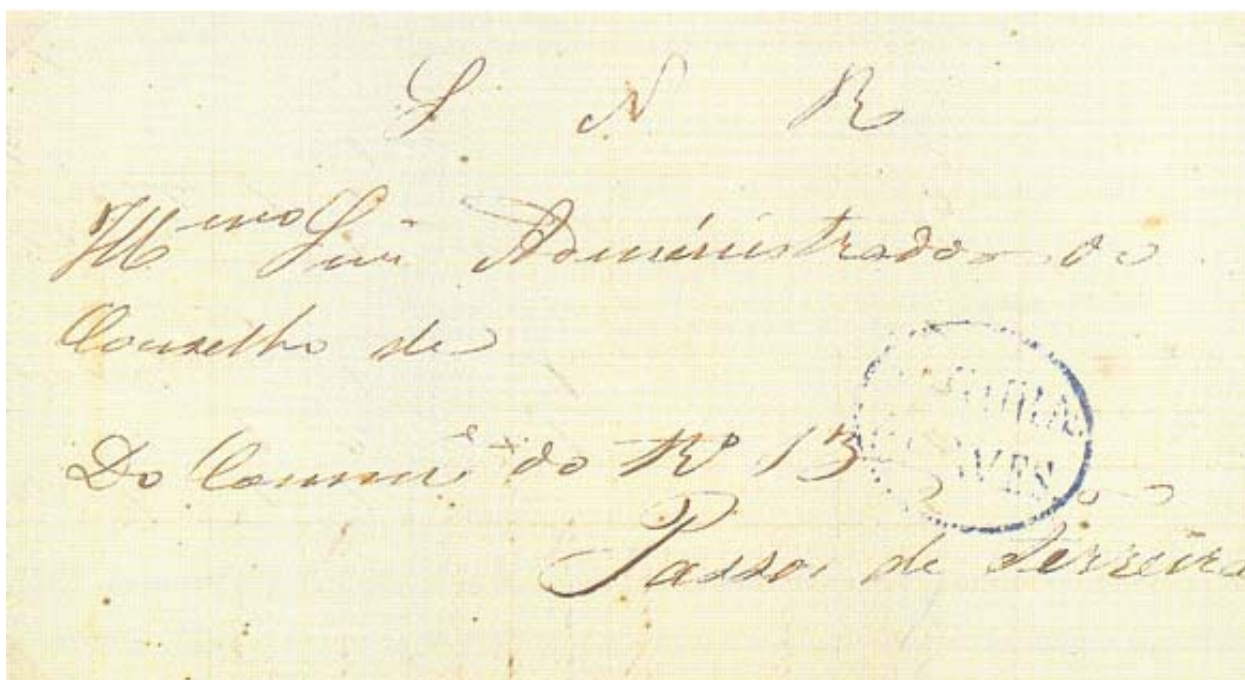 S N R
Illmo Snr Administrador do
Conselho de
Do Comm.e do Ro 13
Passos de Ferreira